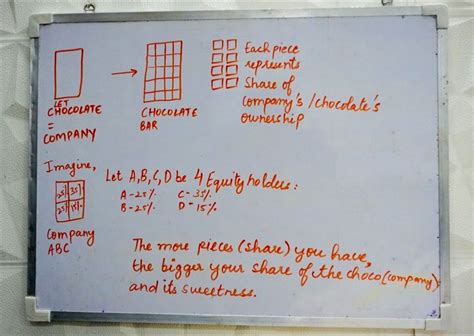 LET
CHOCOLATE
=
COMPANY
CHOCOLATE
BAR
Each piece
represents
Share of
company's/chocolate's
ownership
Imagine,
25% 35%
25% 15%
Company
ABC
Let A,B,C,D be 4 Equity holders:
A-25% C-35%
B-25% D-15%
The more pieces (share) you have,
the bigger your share of the choco(company)
and its sweetness.